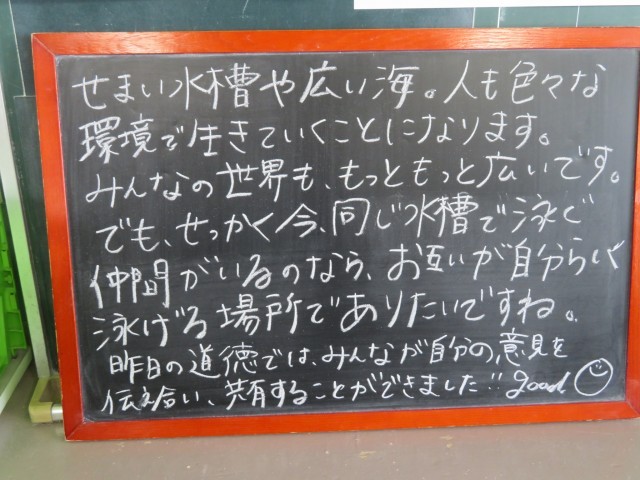 せまい水槽や広い海。人も色々な
環境で生きていくことになります。
みんなの世界も、もっともっと広いです。
でも、せっかく今、同じ水槽で泳ぐ
仲間がいるのなら、お互いが自分らしく
泳げる場所でありたいですね。
昨日の道徳では、みんなが自分の意見を
伝え合い、共有することができました!! good